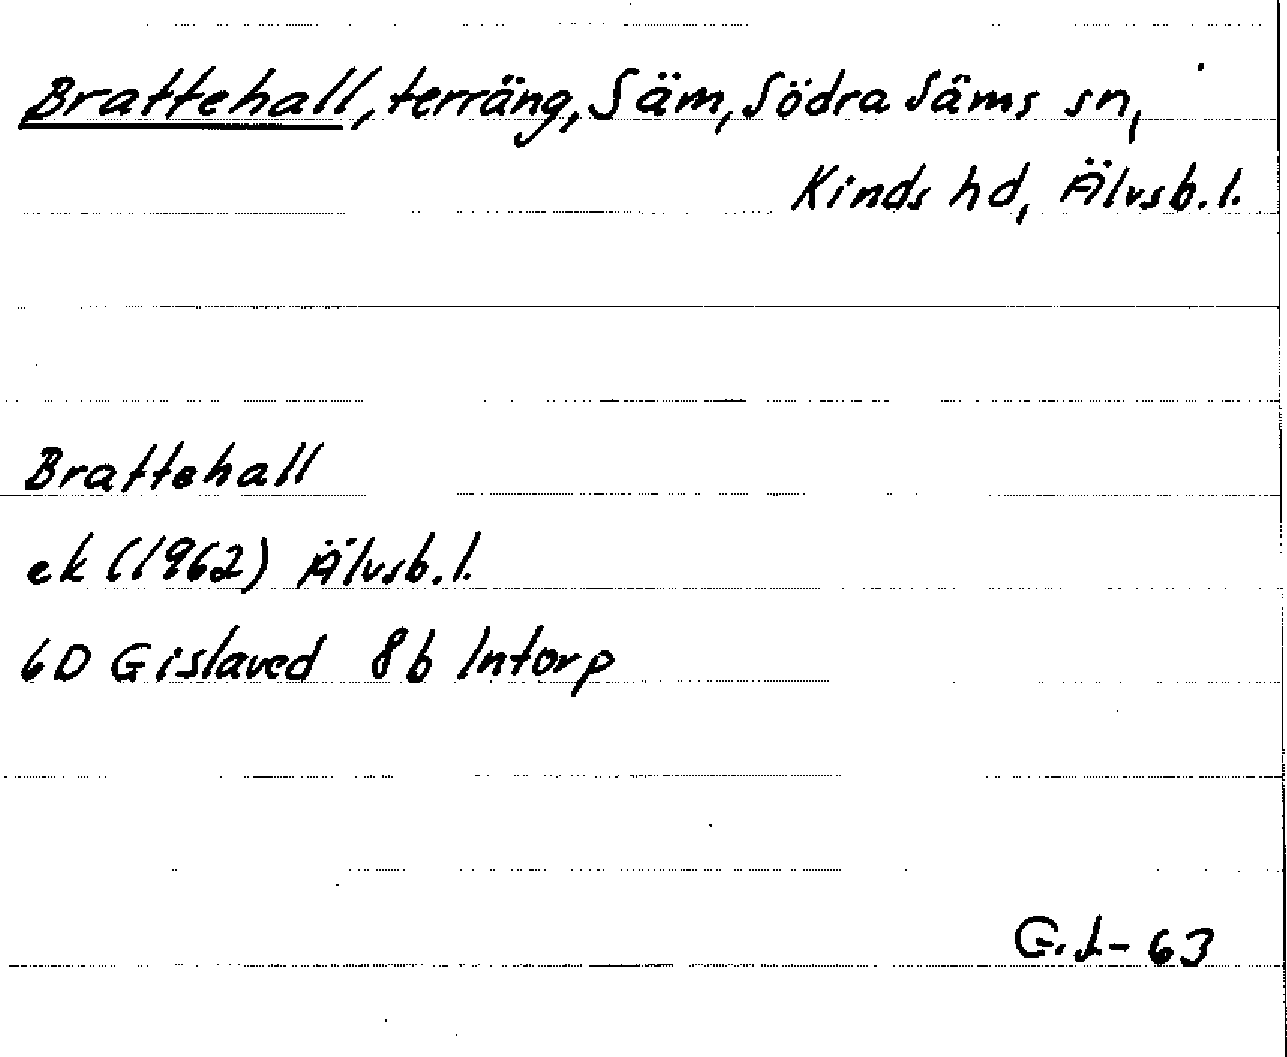 Brattehall, terräng, Säm, Södra Säms sn,
Kinds hd, Älvsb. l.
Brattehall
ek (1962) Älvsb. l.
6D Gislaved 8b Intorp
G.L-63